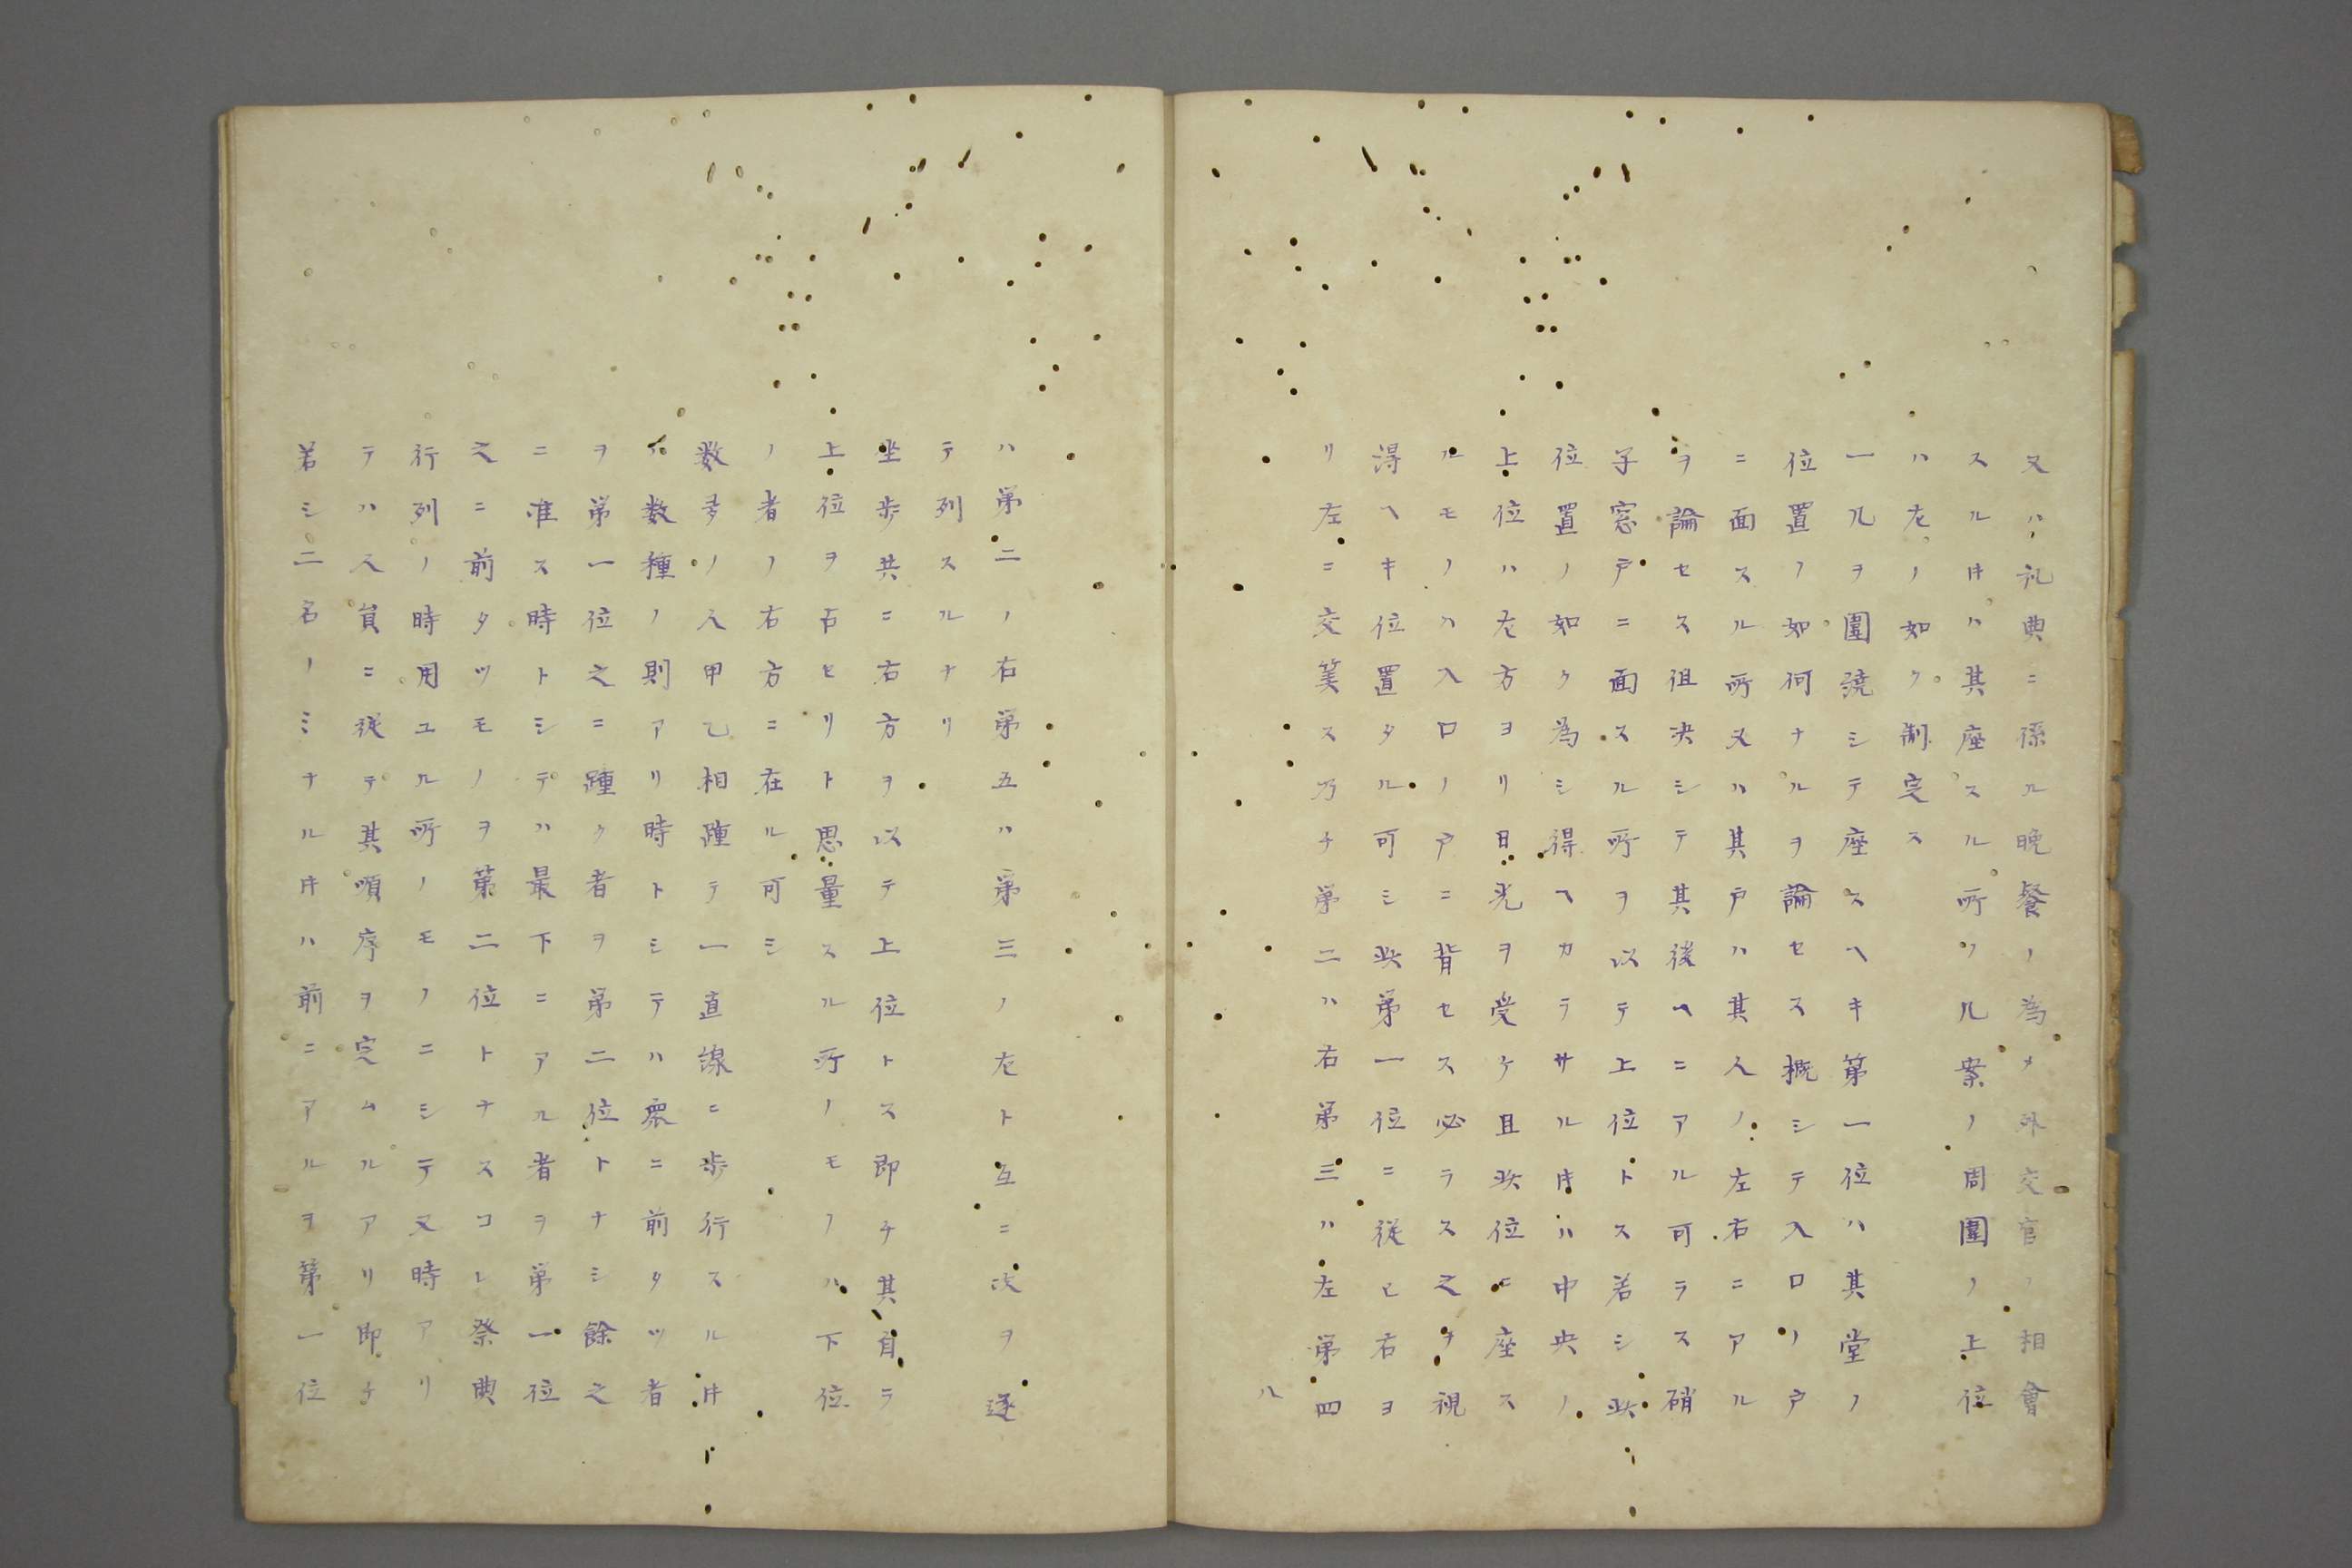 又ハ礼典ニ係ル晩餐ノ為メ外交官ノ相會
スルキハ其座スル所ノ几案ノ周圍ノ上位
ハ左ノ如ク制定ス
一几ヲ圍繞シテ座スヘキ第一位ハ其堂ノ
位置ノ如何ナルヲ論セス概シテ入口ノ戸
ニ面スル所又ハ其戸ハ其人ノ左右ニアル
ヲ論セス徂决シテ其後ヘニアル可ラス硝
子窓戸ニ面スル所ヲ以テ上位トス若シ此
位置ノ如ク為シ得ヘカラサルキハ中央ノ
上位ハ左方ヨリ日光ヲ受ケ且此位ニ座ス
ルモノハ入口ノ戸ニ背セス必ラス之ヲ視
得ヘキ位置タル可シ此第一位ニ従ヒ右ヨ
リ左ニ交筭ス乃チ第二ハ右第三ハ左第四
八
ハ第二ノ右第五ハ第三ノ左ト互ニ次ヲ逐
テ列スルナリ
坐歩共ニ右方ヲ以テ上位トス即チ其自ラ
上位ヲ占セリト思量スル所ノモノハ下位
ノ者ノ右方ニ在ル可シ
数多ノ人甲乙相踵テ一直線ニ歩行スルキ
ハ数種ノ則アリ時トシテハ衆ニ前タツ者
ヲ第一位之ニ踵ク者ヲ第二位トナシ餘之
ニ准ス時トシテハ最下ニアル者ヲ第一位
之ニ前タツモノヲ第二位トナスコレ祭典
行列ノ時用ユル所ノモノニシテ又時アリ
テハ人員ニ従テ其順序ヲ定ムルアリ即チ
若シ二名ノミナルキハ前ニアルヲ第一位